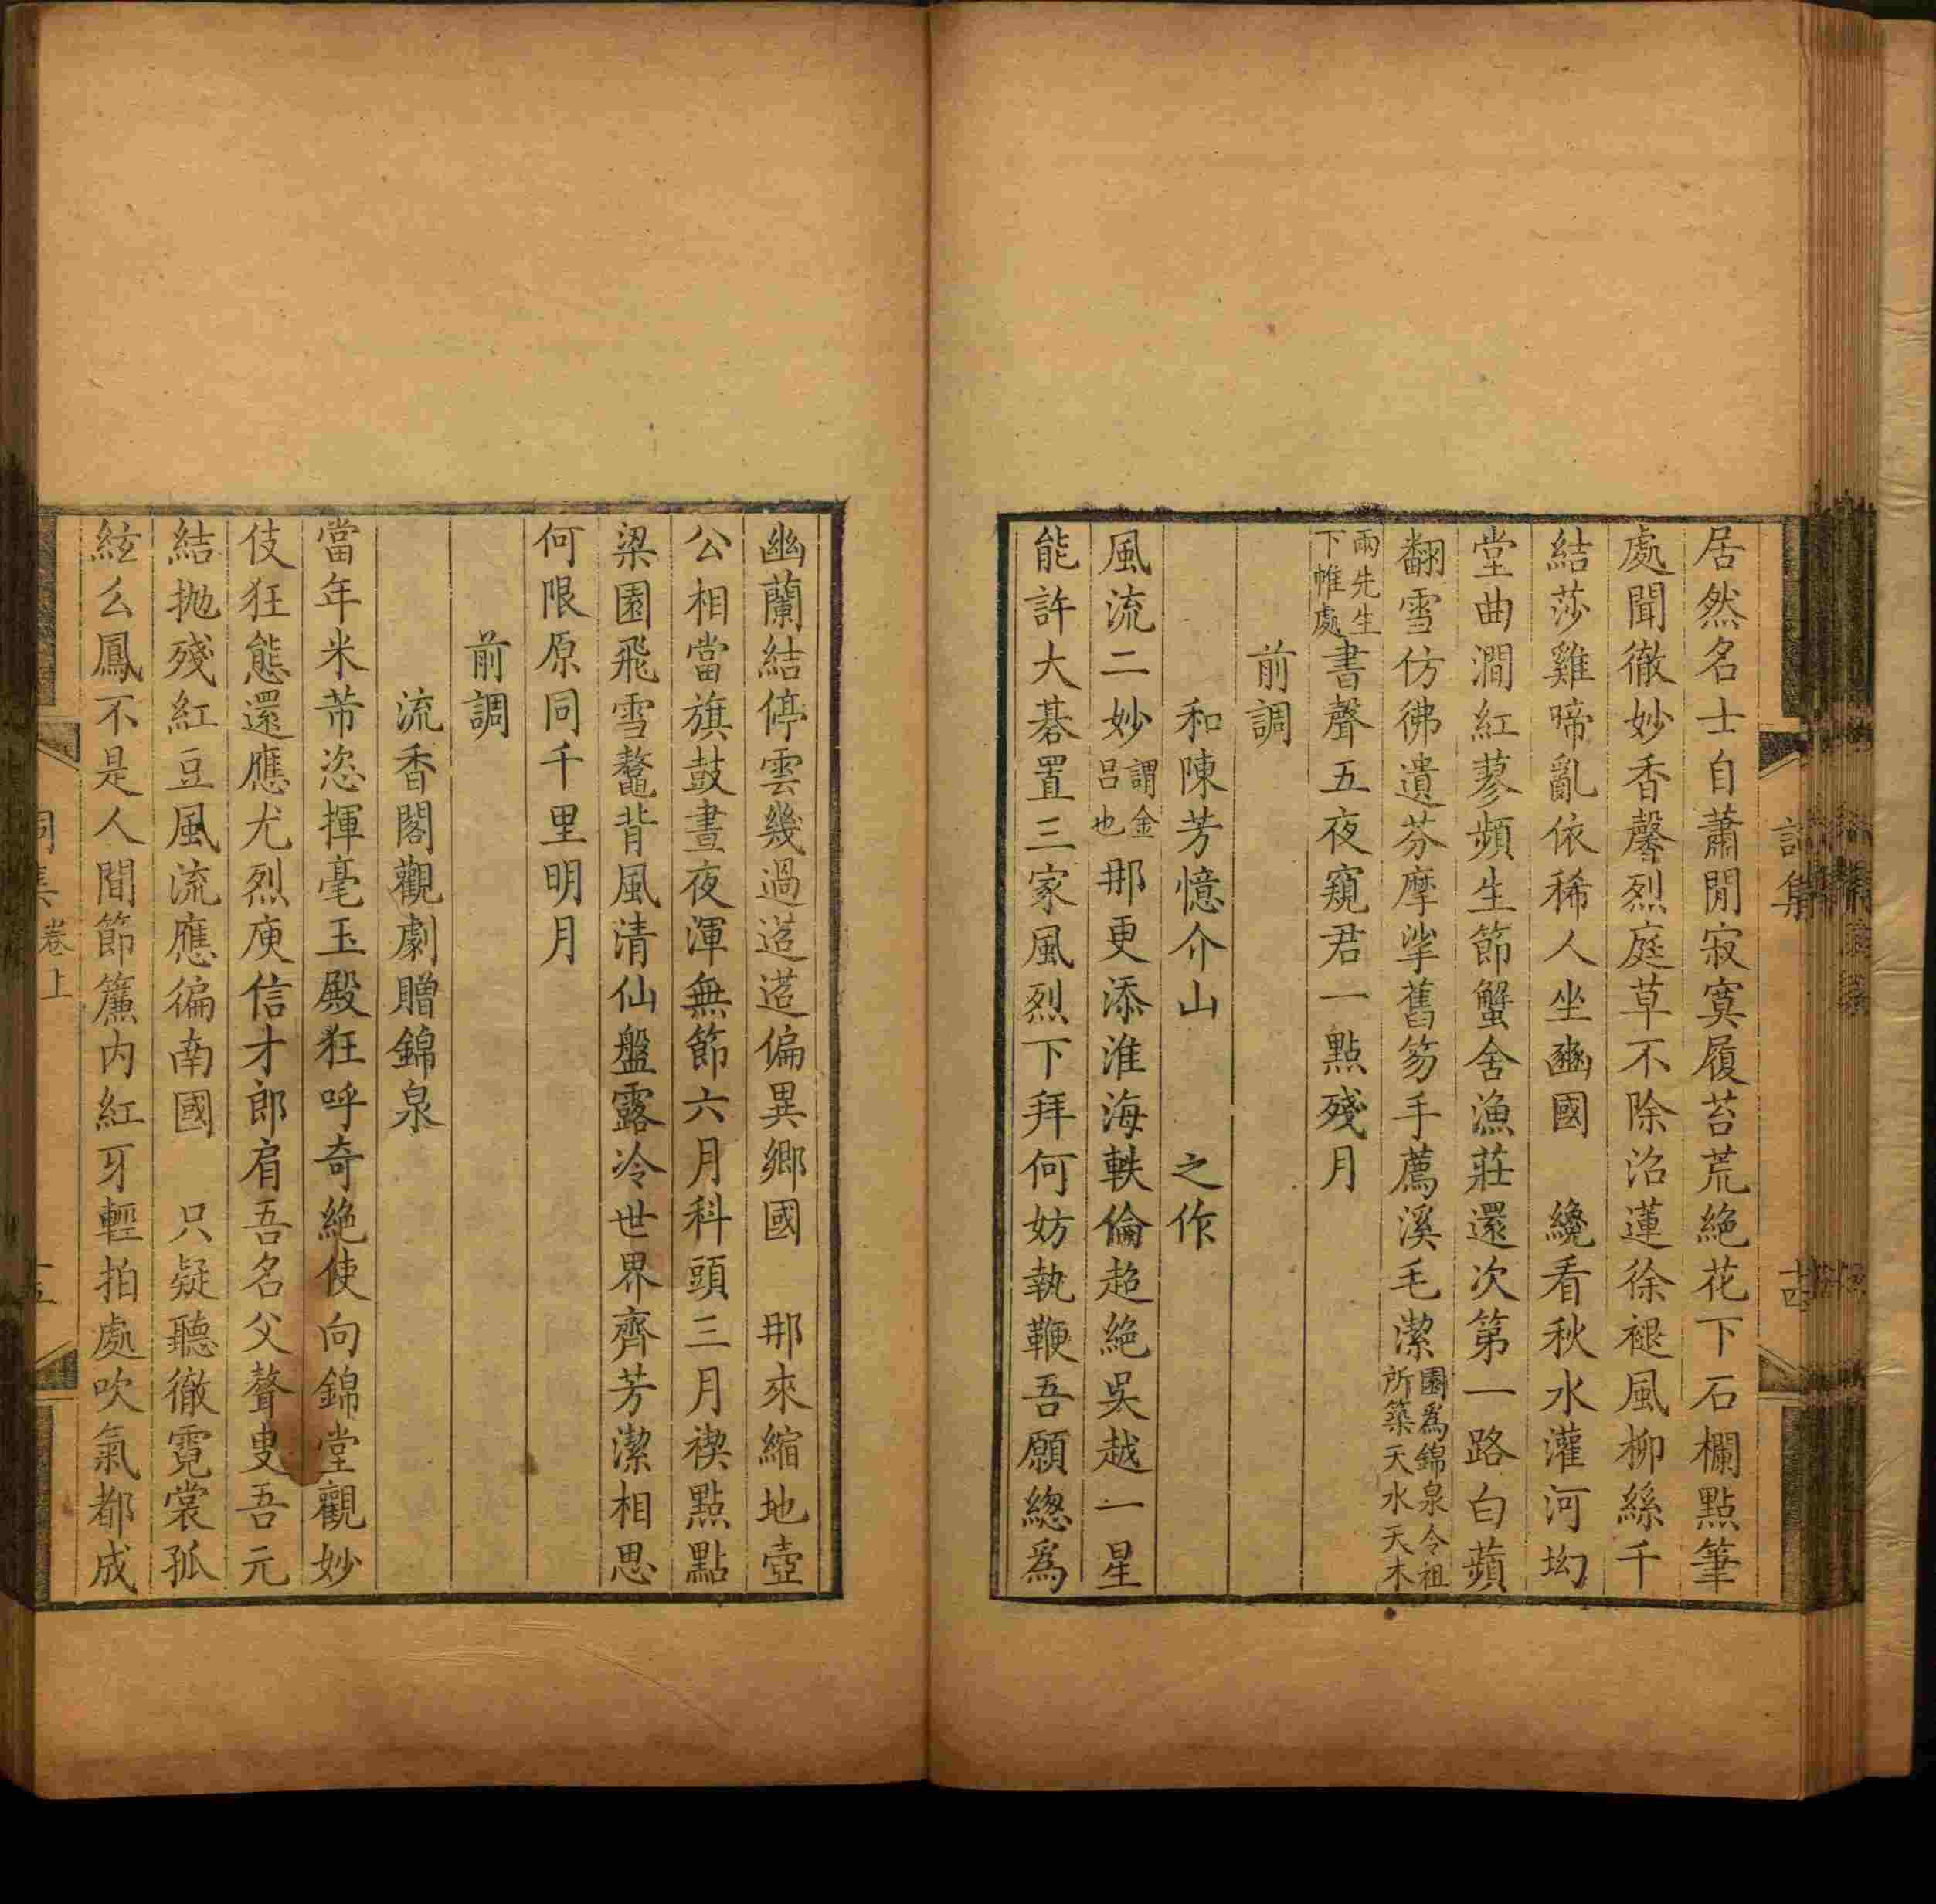 居然名士自蕭閒寂寞履苔荒絶花下石欄點筆
處聞徹妙香馨烈庭草不除沼蓮徐褪風柳絲千
結莎雞啼亂依稀人坐豳國　纔看秋水灌河坳
堂曲澗紅蓼頻生節蟹舍漁莊還次第一路白蘋
翻雪仿彿遺芬摩挲舊笏手薦溪毛潔園爲錦泉令祖所築天水天木
兩先生下帷處書聲五夜窺君一點殘月
前調
和陳芳憶介山　　之作
風流二妙謂金呂也那更添淮海軼倫超絶吳越一星
能許大碁置三家風烈下拜何妨執鞭吾願緫爲
詞集
十四
幽蘭結停雲幾過迢迢偏異鄉國　那來縮地壺
公相當旗鼓晝夜渾無節六月科頭三月禊點點
梁園飛雪鼇背風清仙盤露冷世界齊芳潔相思
何限原同千里明月
前調
流香閣觀劇贈錦泉
當年米芾恣揮毫玉殿狂呼奇絶使向錦堂觀妙
伎狂態還應尤烈庾信才郎肩吾名父聱叟吾元
結抛殘紅豆風流應徧南國　只疑聽徹霓裳孤
絃么鳳不是人間節簾内紅牙輕拍處吹氣都成
詞集卷上
十五